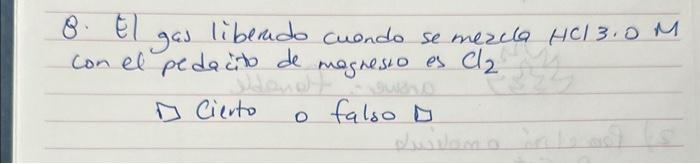 8. El gas liberado cuando se mezcla HCl 3.0 M
con el pedacito de magnesio es Cl2
□ Cierto o falso □